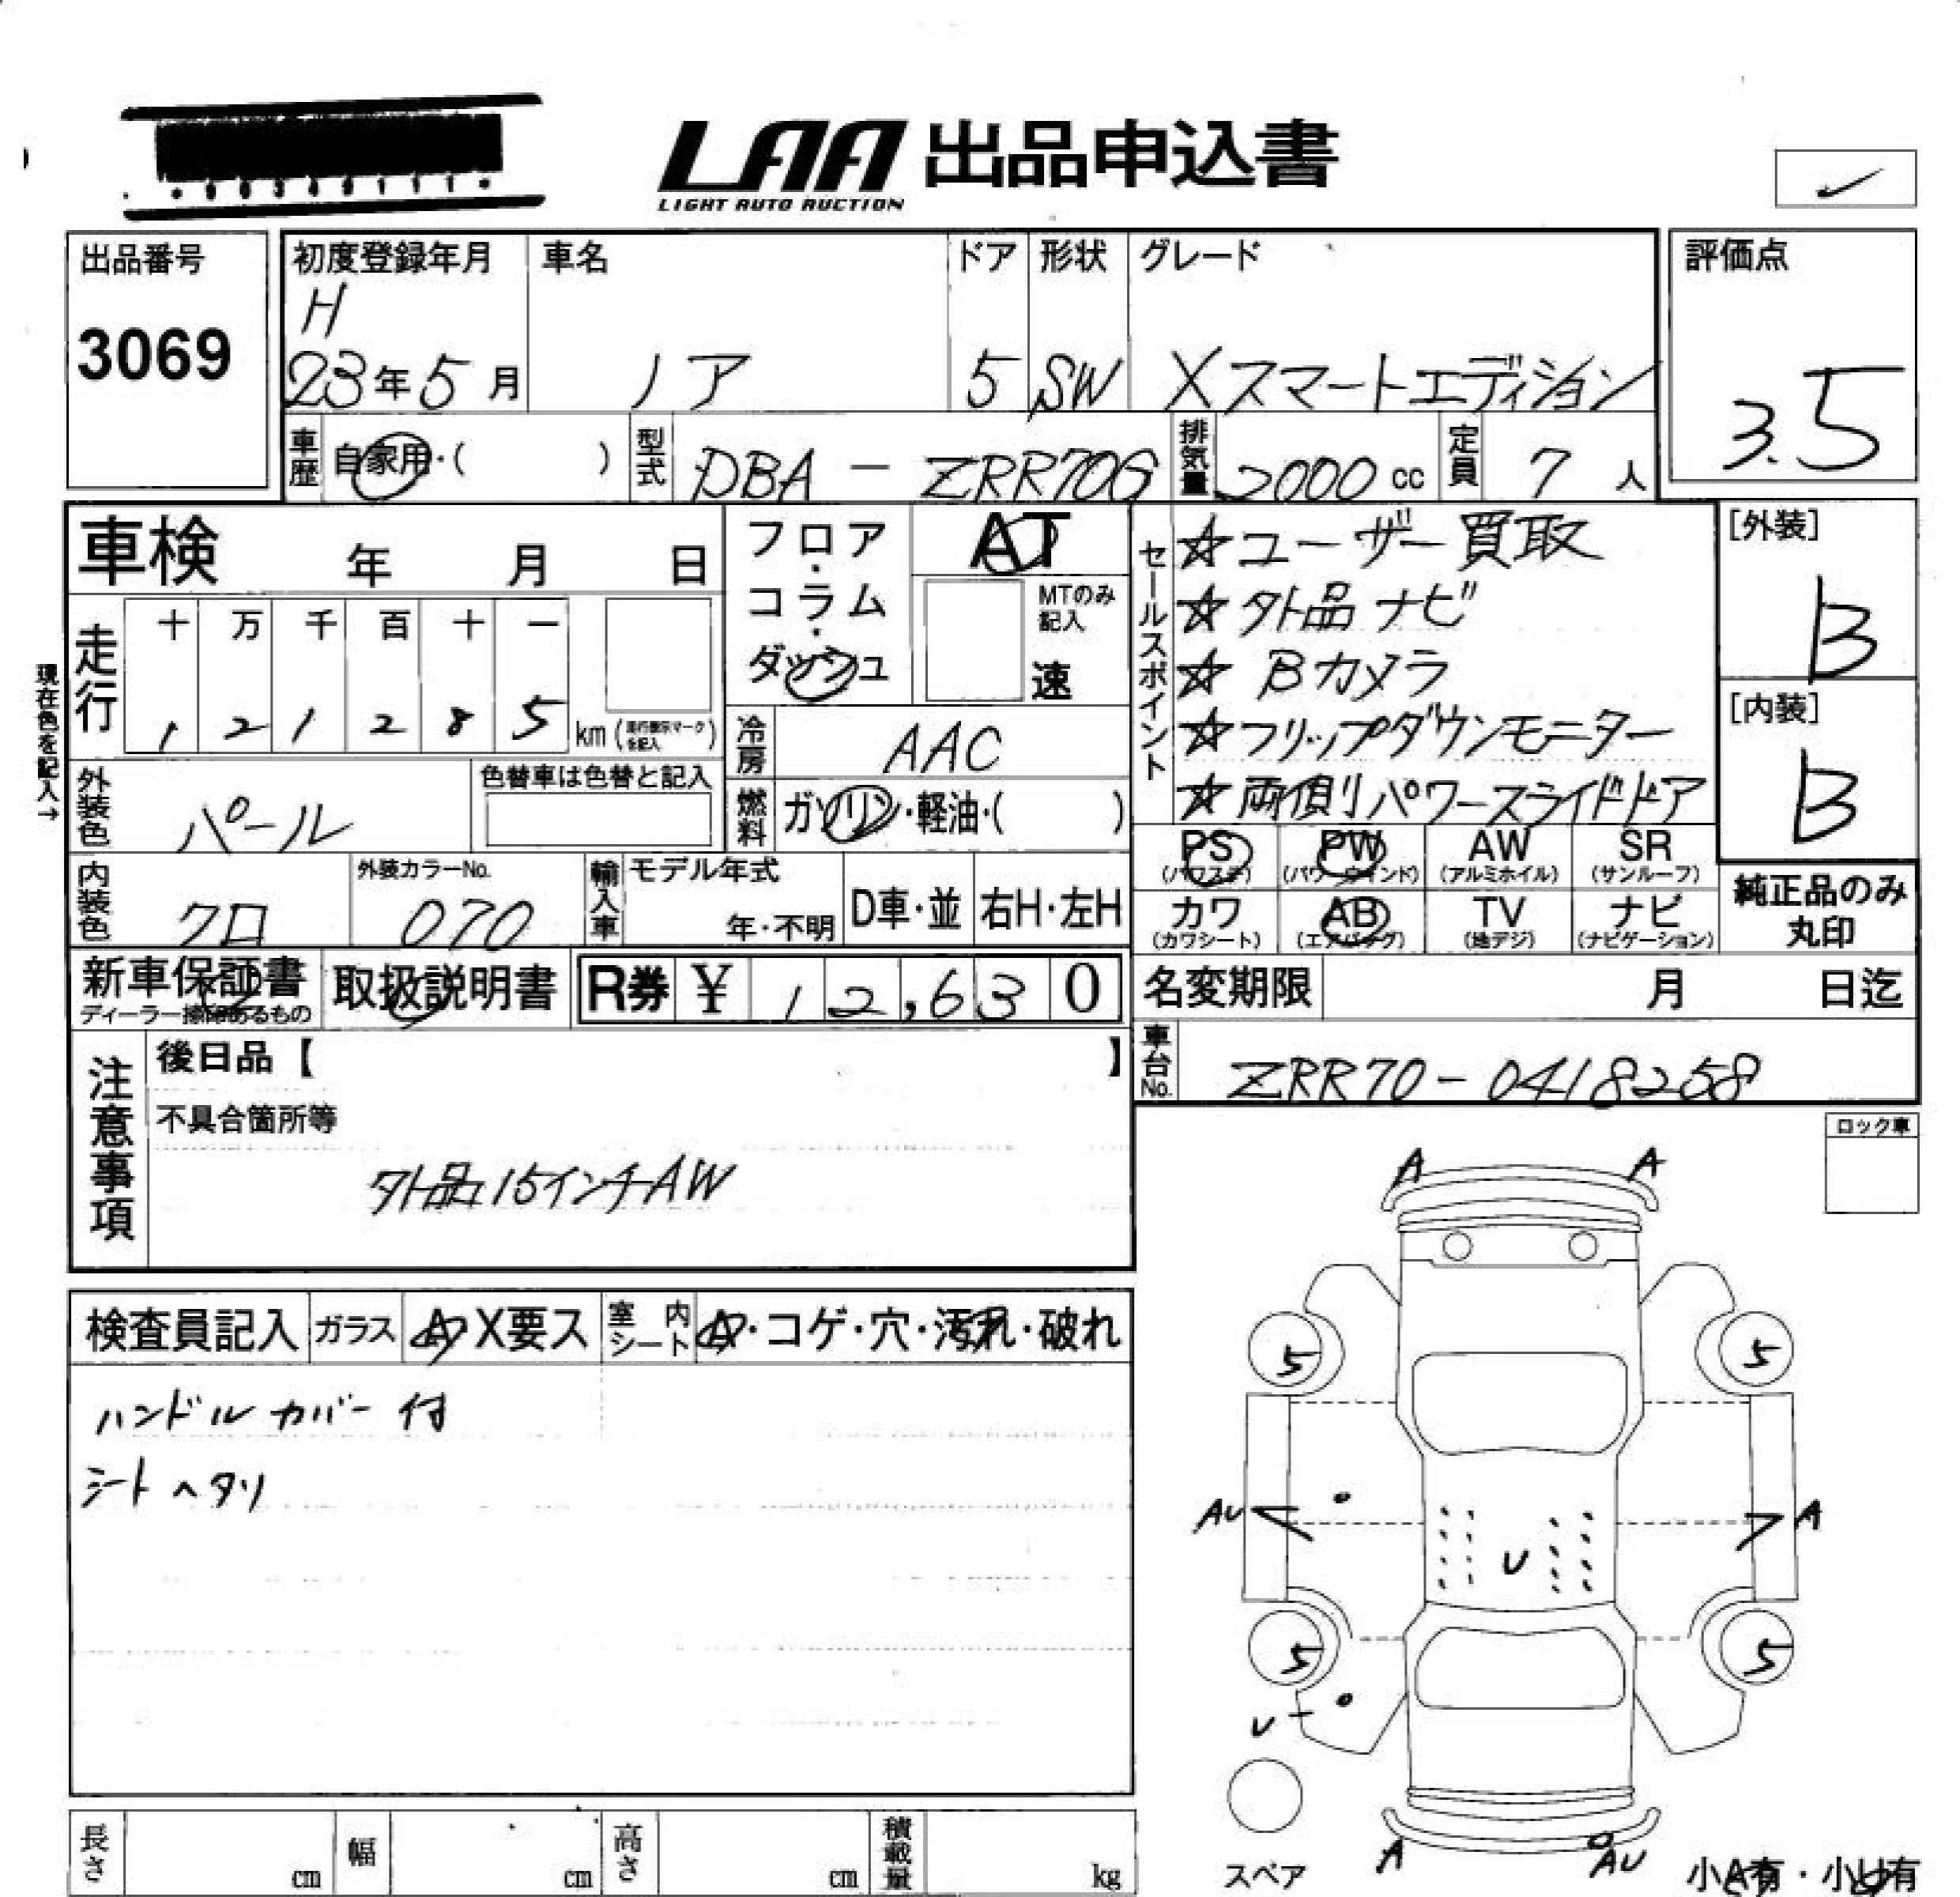 LAA 出品申込書
LIGHT AUTO AUCTION
出品番号
3069
初度登録年月
H
23年5月
車名
ノア
ドア
5
形状
SW
グレード
Xスマートエディション
評価点
3.5
車歴
自家用・( )
型式
DBA-ZRR70G
排気量
2000cc
定員
7人
車検 年 月 日
フロア・コラム・ダッシュ
AT
MTのみ記入
速
セールスポイント
☆ユーザー買取
☆外品ナビ
☆Bカメラ
☆フリップダウンモニター
☆両側パワースライドドア
[外装]
B
[内装]
B
現在色を記入→
走行
十 万 千 百 十 一
1 2 1 2 8 5 km
冷房
AAC
外装色
パール
色替車は色替と記入
燃料
ガソリン・軽油・( )
PS
(パワステ)
PW
(パワーウインド)
AW
(アルミホイル)
SR
(サンルーフ)
カワ
(カワシート)
AB
(エアバッグ)
TV
(地デジ)
ナビ
(ナビゲーション)
純正品のみ
丸印
内装色
クロ
外装カラーNo.
070
輸入車
モデル年式
年・不明
D車・並
右H・左H
新車保証書
取扱説明書
R券 ¥ 12,630
名変期限 月 日迄
車台No.
ZRR70-0418258
注意事項
後日品【 】
不具合箇所等
外品15インチAW
ロック車
検査員記入
ガラス
A X要ス
室内シート
A・コゲ・穴・汚れ・破れ
ハンドルカバー付
シートヘタリ
A A
5 5
AU A
U
5 5
U
A AU
スペア
小A有・小U有
長さ cm
幅 cm
高さ cm
積載量 kg